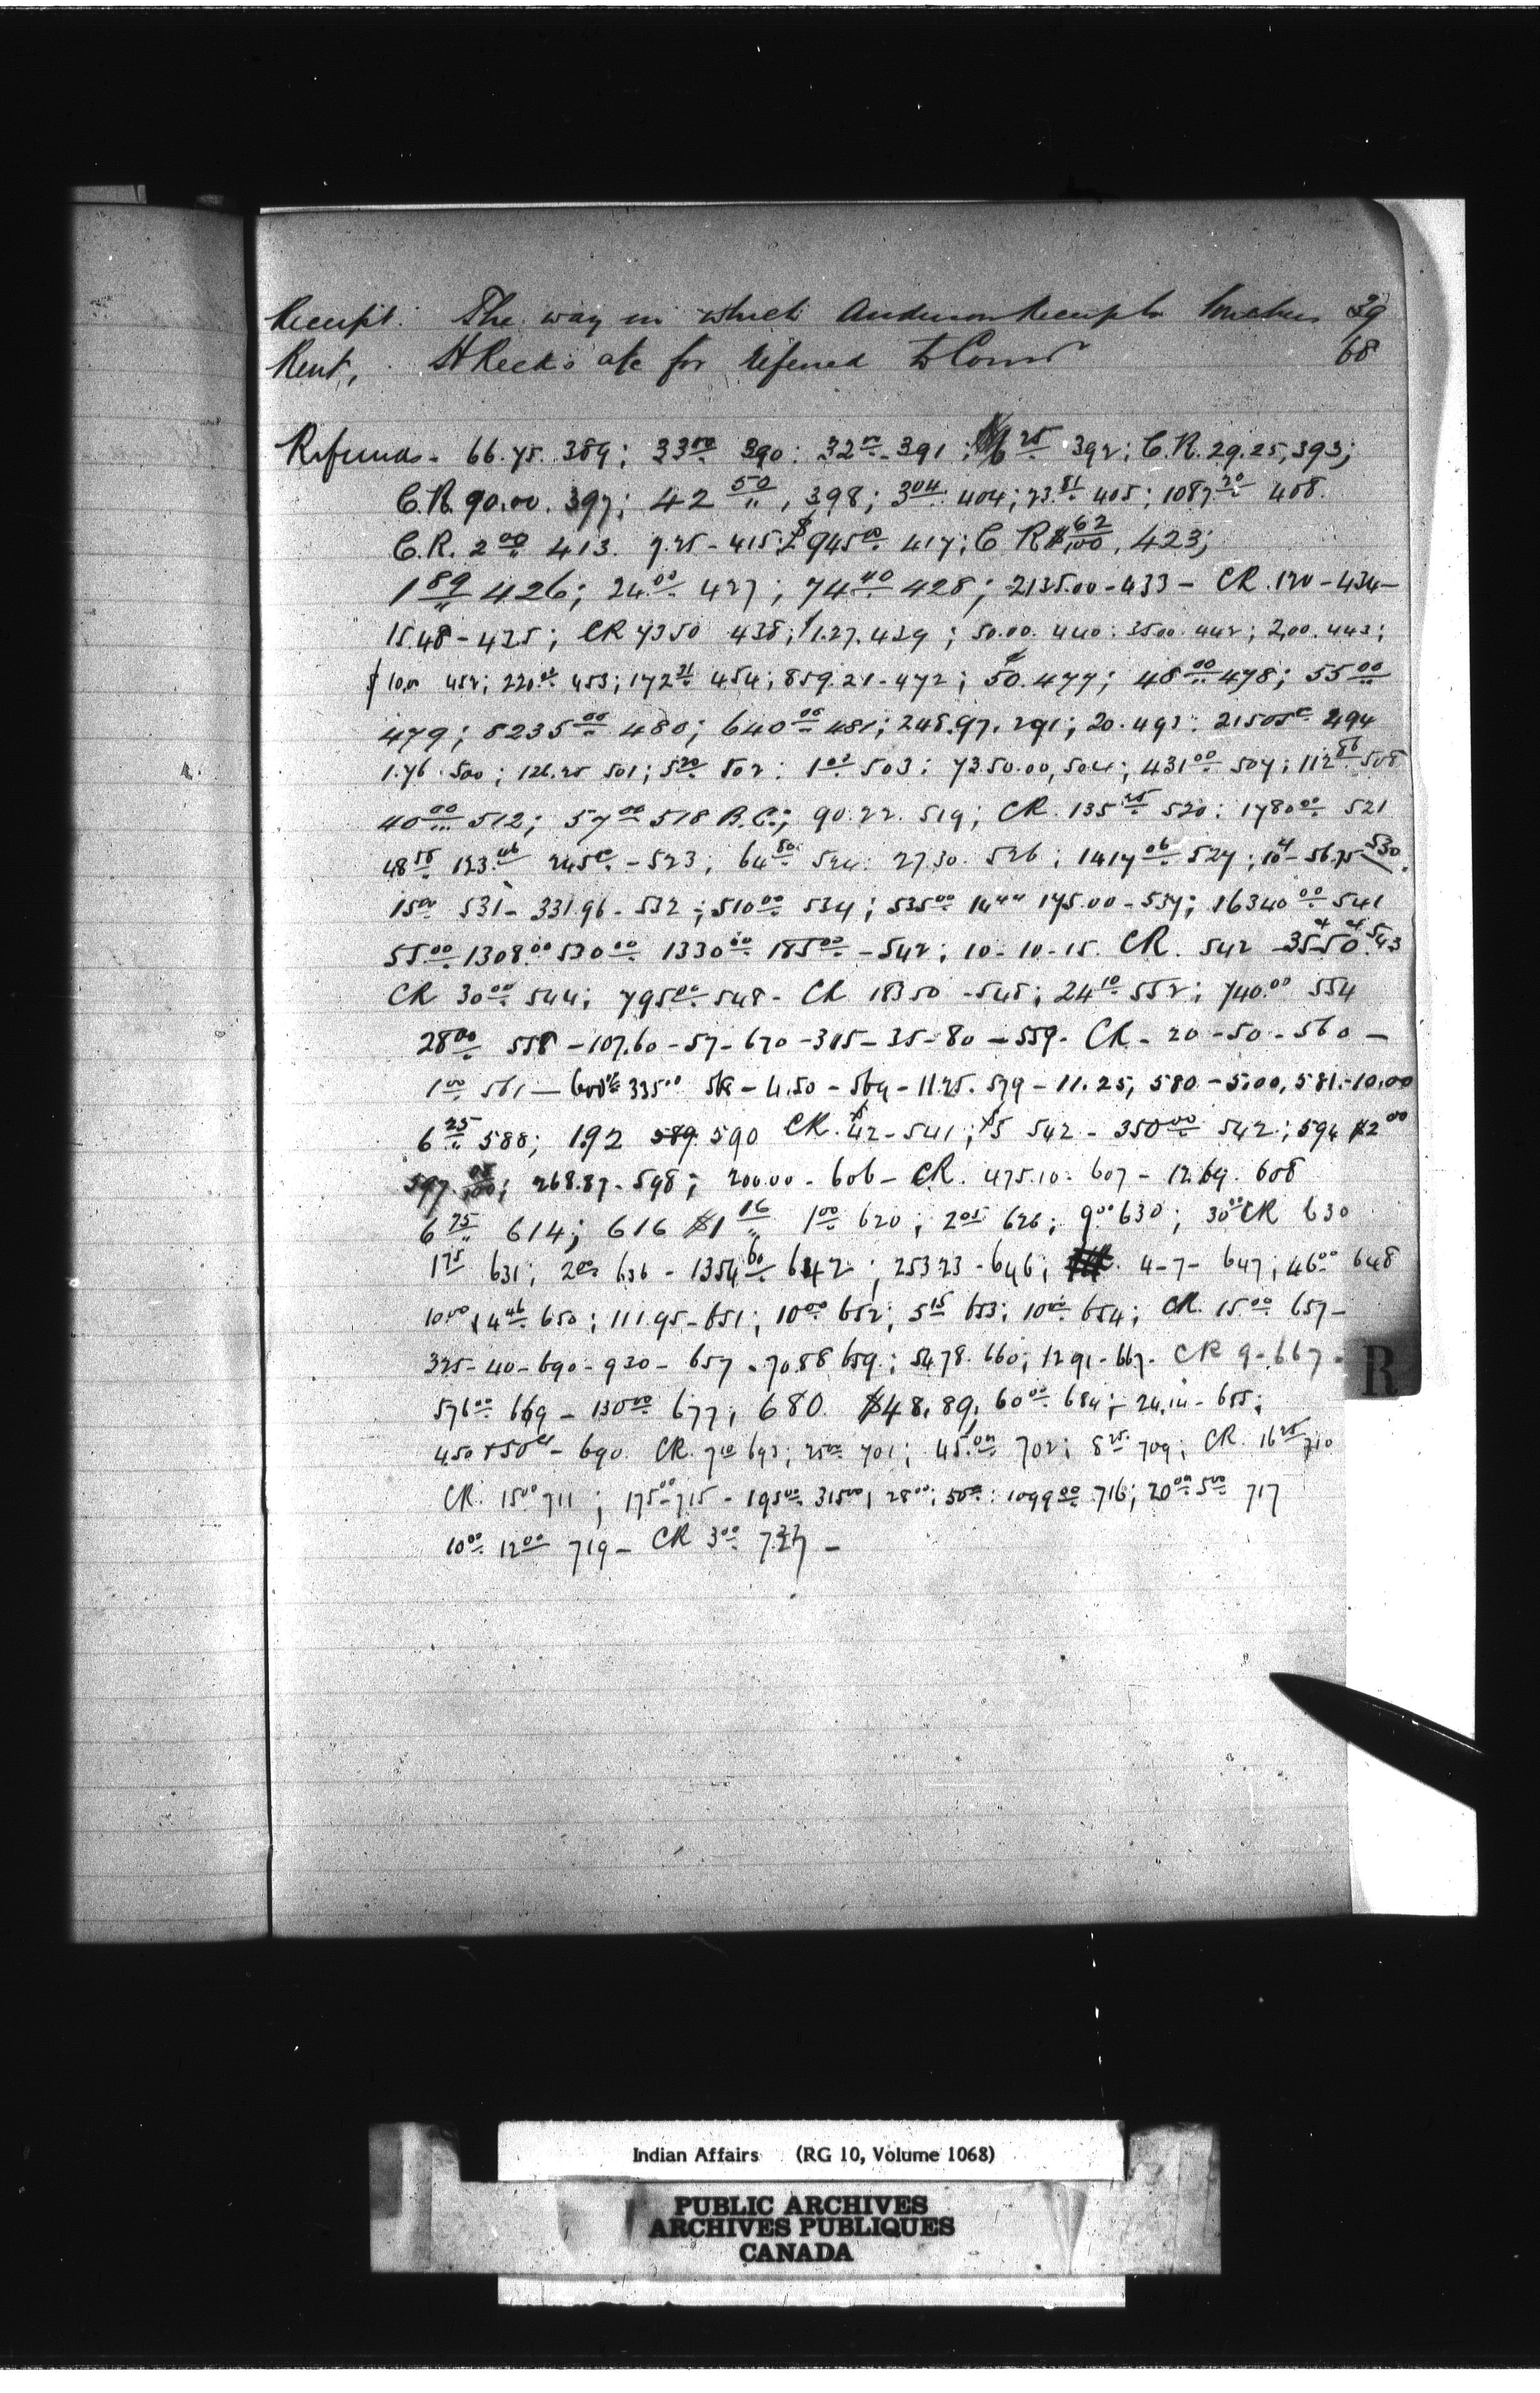 Receipt. The way in which Anderson Receipts 39
Rent, ats for refered to Comr 68
Refunds - 66.75. 389; 33 00 390; 32 00 - 391; 6 25 392; C.R. 29.25, 393;
C.R. 90.00. 397; 42 50, 398; 3 04 404; 23 81 405; 1087 20 408.
C.R. 2 00 413. 7.25 - 415; $945 00 417; C R $ 62/100, 423;
1 89 426; 24 00 427; 74 40 428; 2135.00 - 433 - CR. 120 - 434 -
15.48 - 435; CR 4350 438; $1.27. 439; 50.00. 440: 3500. 442; 2,00. 443;
$10.00 452; 220 453; 172 31 454; 859.21 - 472; 50. 477; 48 00 478; 55 00
479; 8235 00 480; 640 00 481; 248.97. 291; 20. 493: 494
1.76. 500; 126.25 501; 5 20 502: 1 02 503; 7350.00, 504; 431 00 507; 112 86 508
40 00 512; 57 00 518 B.C.; 90.22. 519; CR. 135 25 520: 1780 00 521
48 55 123 46 245 - 523; 64 80 524: 27.30. 526; 1417 06 527; 10 - 56.75 530.
15 00 531 - 331.96 - 532; 510 00 534; 535 00 175.00 - 537; 16340 00 541
55 00 1308 00 530 00 1330 00 185 00 - 542; 10 - 10 - 15. CR. 542 - 35 - 50. 543
CR 30 00 544; 795 00 548 - CR 18350 - 548; 24 10 552; 740.00 554
28 00 558 - 107.60 - 57 - 670 - 315 - 35 - 80 - 559. CR - 20 - 50 - 560 -
1 00 561 - 335 00 - 4.50 - 569 - 11.25. 579 - 11.25, 580 - 5.00, 581. - 10.00
6 25 588; 1.92 589 590 CR. $42 - 541; $5 542 - 350 00 542; 594 $2 00
597. /100; 268.87 - 598; 200.00 - 606 - CR. 475.10 - 607 - 12.69. 608
6 75 614; 616 $1 16 1 00 620; 2 05 626; 9 00 630; 30 00 CR 630
1 75 631; 2 00 636 - 1354 60 642; 253 23 - 646; 4 - 7 - 647; 46 00 648
10 00 4 46 650; 111.95 - 651; 10 00 652; 5 15 653; 10 00 654; CR. 15 00 657 -
325 - 40 - 690 - 930 - 657 - 70.88 659; 54.78. 660; 1291 - 667 - CR 9 - 667 -
576 00 669 - 130 00 677; 680. $48.89, 60 00 684; 24.10 - 685;
4.50 + 50 cts - 690. CR. 7 10 693; 25 00 701; 45 00 702; 8 25 709; CR. 16 25 710
CR. 15 00 711; 175 00 - 715 - 195 00 315 00; 28 00; 50 00: 1099 80 716; 20 00 5 00 717
10 00 12 00 719 - CR 3 00 727 -
R
Indian Affairs (RG 10, Volume 1068)
PUBLIC ARCHIVES
ARCHIVES PUBLIQUES
CANADA